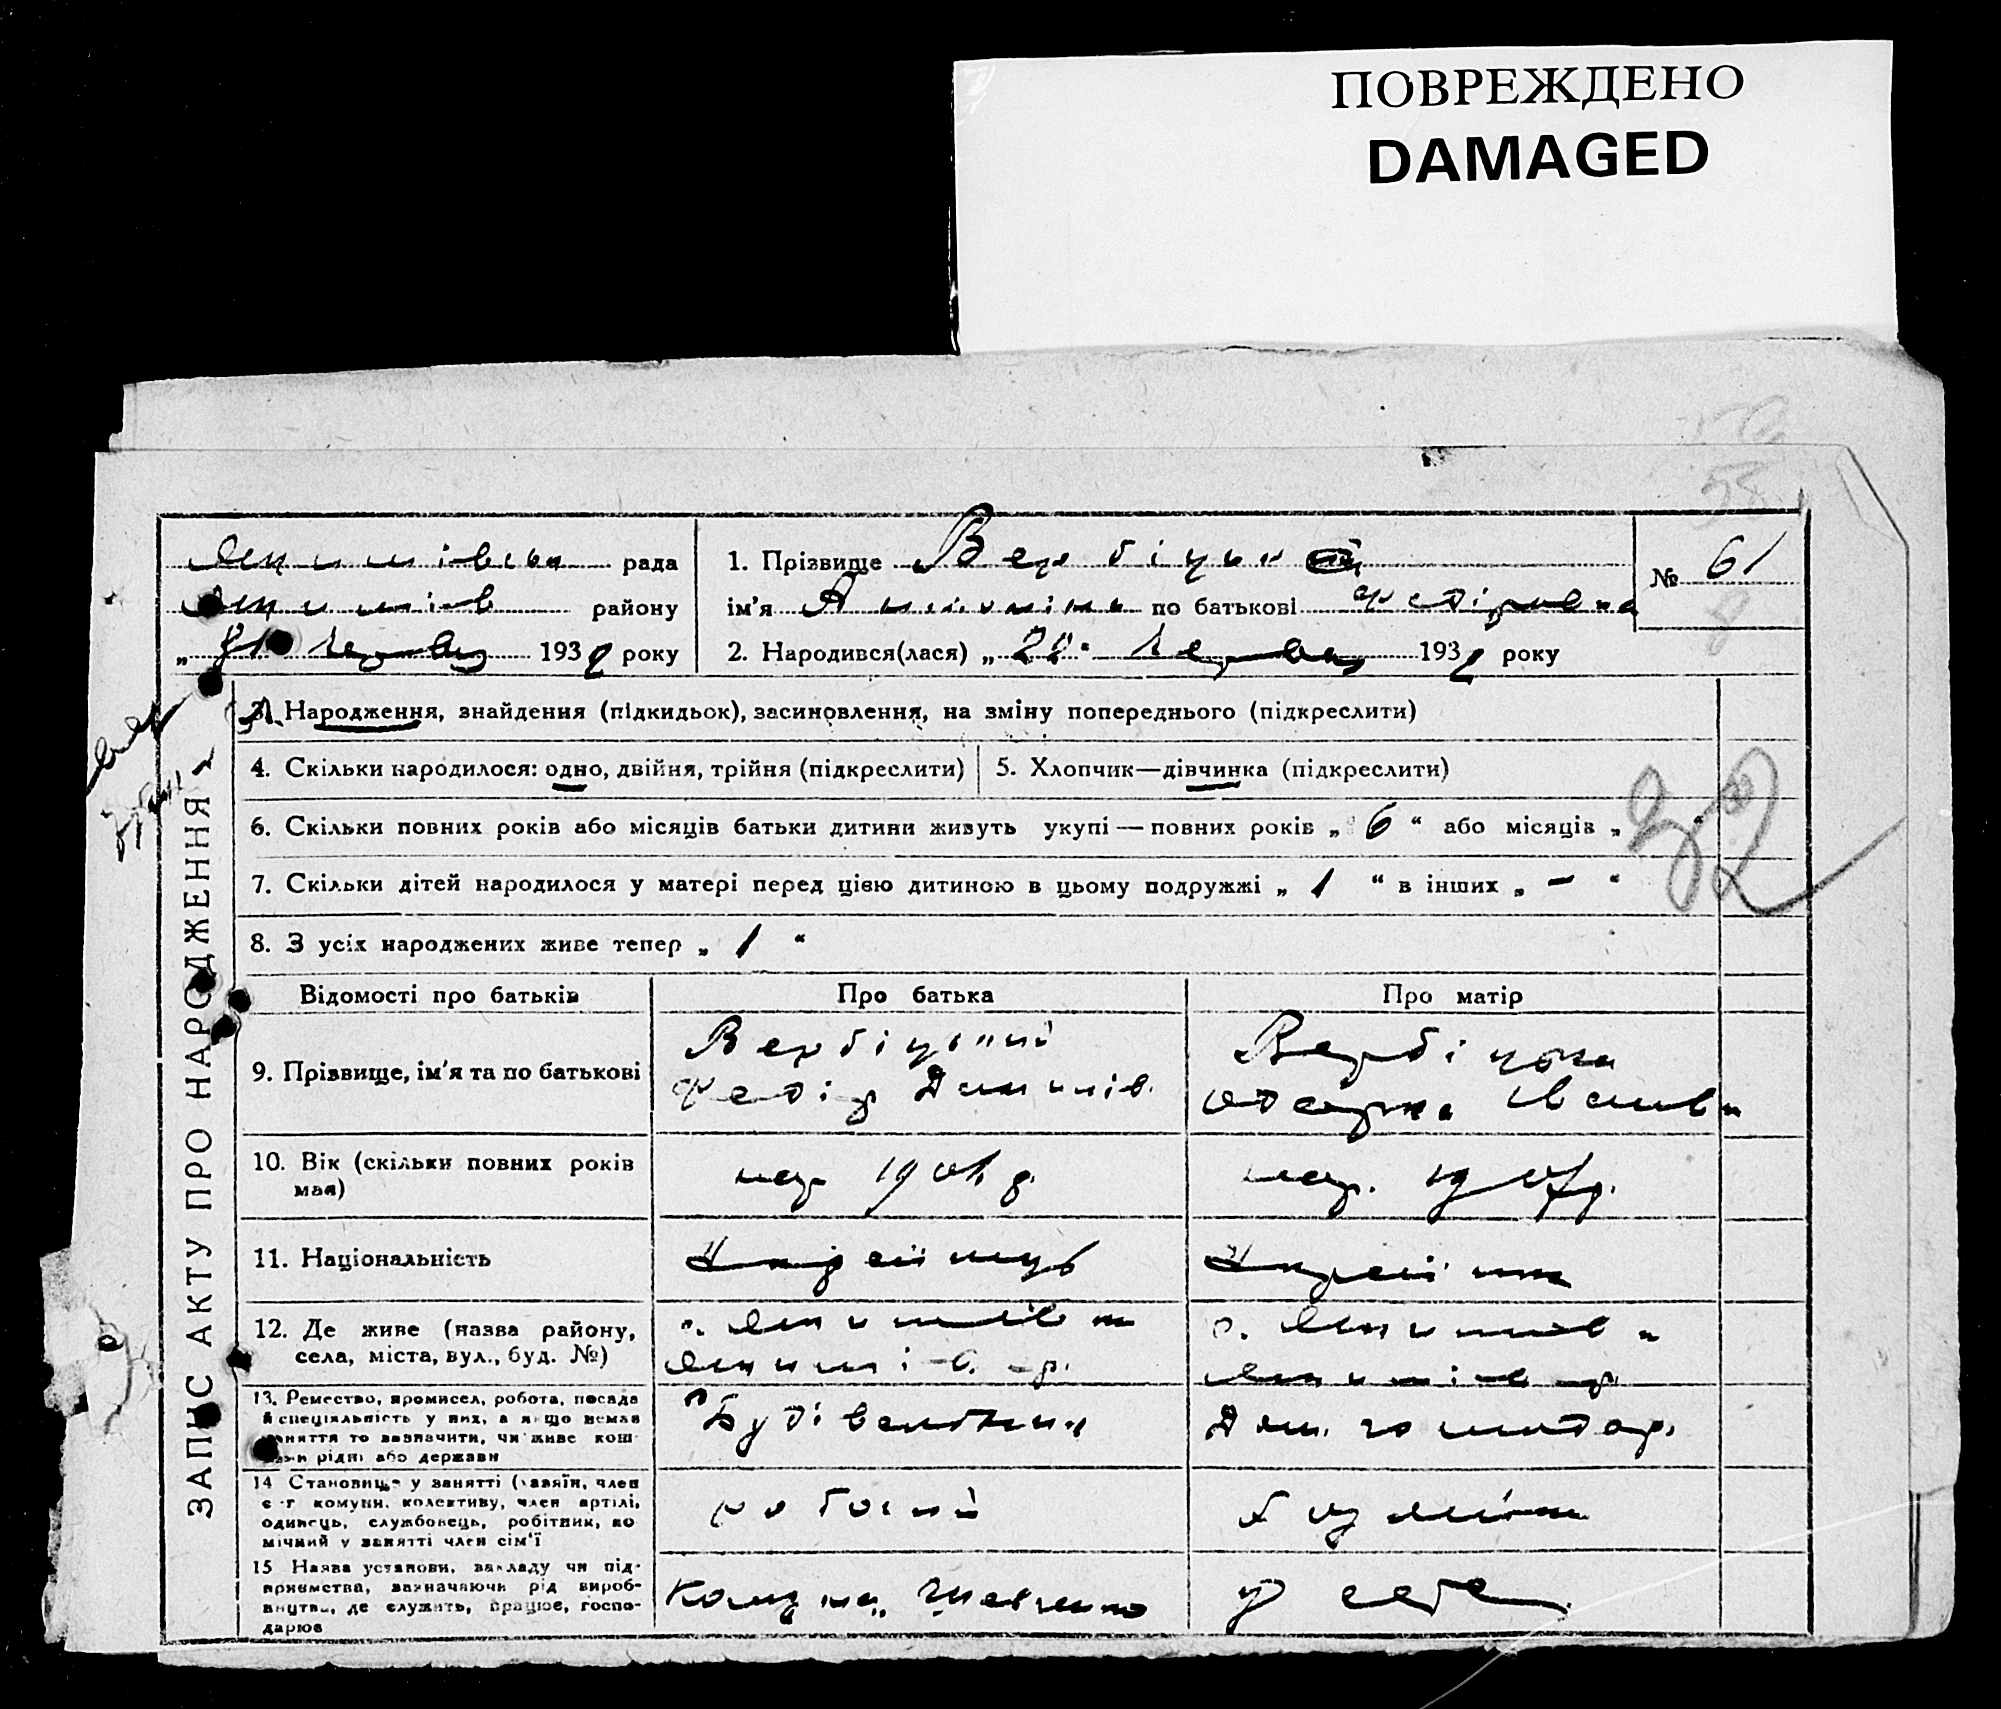 ПОВРЕЖДЕНО
DAMAGED
рада
району
193 року
1. Прізвище Вербіцький
ім'я Антоніна по батькові Федіровна
2. Народився(лася) „ 28 " Червня 193 року
№ 61
ЗАПИС АКТУ ПРО НАРОДЖЕННЯ
3. Народження, знайдення (підкидьок), засиновлення, на зміну попереднього (підкреслити)
4. Скільки народилося: одно, двійня, трійня (підкреслити) 5. Хлопчик—дівчинка (підкреслити)
6. Скільки повних років або місяців батьки дитини живуть укупі — повних років „ 6 “ або місяців „
7. Скільки дітей народилося у матері перед цією дитиною в цьому подружжі „ 1 “ в інших „ – “
8. З усіх народжених живе тепер „ 1 “
32
Відомості про батьків Про батька Про матір
9. Прізвище, ім'я та по батькові
Вербіцький
Федір Данилів.
Вербіцька
Одарка Іванівн
10. Вік (скільки повних років
має)
нар 1901 р.
нар. 1907 р.
11. Національність
Українець
Українка
12. Де живе (назва району,
села, міста, вул., буд. №)
13. Ремество, промисел, робота, посада
й спеціяльність у них, а якщо немає
заняття то зазначити, чи живе кош-
рідні або держави
Будівельник
Дом. господар.
14 Становище у занятті (хазяїн, член
с-г комуни, колективу, член артілі,
одинець, службовець, робітник, по
мічний у занятті член сім'ї
робочий
15 Назва установи, закладу чи під-
приємства, зазначаючи рід вироб-
ництва, де служить, працює, госпо-
дарює
Комуна „Шевченко
у себе